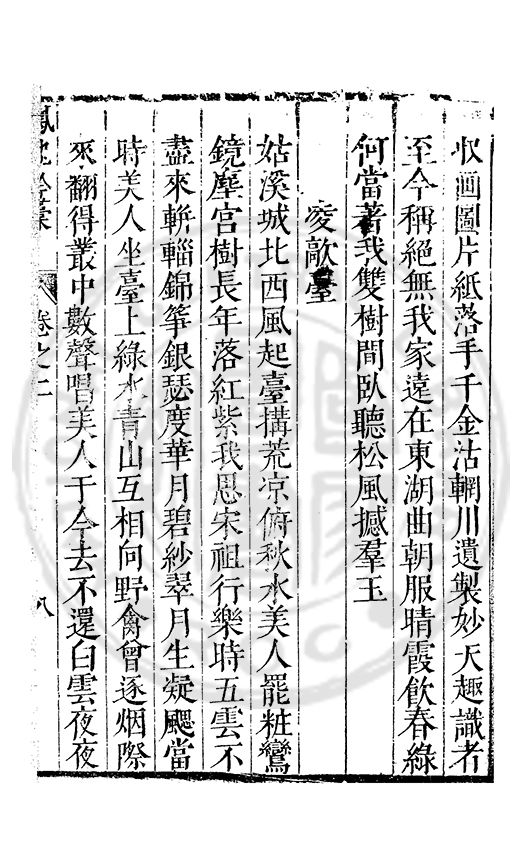 収画圖片紙落手千金沽輞川遺製妙天趣識者
至今稱絕無我家遠在東湖曲朝服晴霞飲春綠
何當著我雙樹間臥聽松風撼羣玉
凌歊臺
姑溪城北西風起臺搆荒凉俯秋水美人罷粧鸞
鏡塵宮樹長年落紅紫我思宋祖行樂時五雲不
盡來輧輜錦筝銀瑟度華月碧紗翠月生凝颸當
時美人坐臺上綠水青山互相向野禽曾逐烟際
來翻得叢中數聲唱美人于今去不還白雲夜夜
卷之二
八